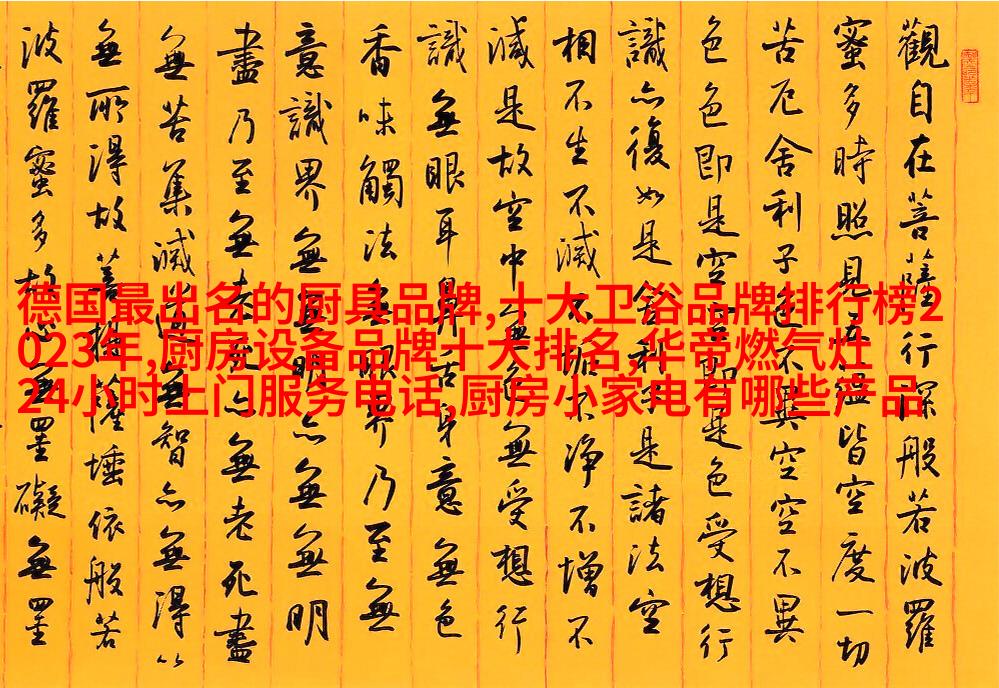 德国最出名的厨具品牌,十大卫浴品牌排行榜2
023年,厨房设备品牌十大排名,华帝燃气灶
24小时上门服务电话,厨房小家电有哪些产品
觀自在菩薩行深般若波羅
蜜多時照見五蘊皆空度一切
苦厄舍利子色不異空空不異
色色即是空空即是色受想行
識亦復如是舍利子是諸法空
相不生不滅不垢不淨不增不
減是故空中無色無受想行
識無眼耳鼻舌身意無色
香味觸法無眼界乃至無
意識界無無明亦無無明
盡乃至無老死亦無老死盡
無苦集滅道無智亦無得以
無所得故菩提薩埵依般若
波羅蜜多故心無罣礙無罣